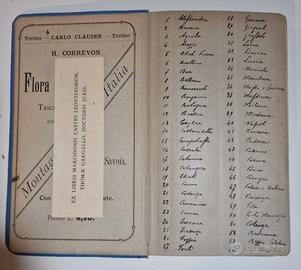 Torino - CARLO CLAUSEN - Torino
H. CORREVON
Flora
Tasca
Montag
Italia
Savoia,
Con
ate.
PREZZO L. 6,50.
EX LIBRIS MARCHIONIS CASTRI LEONTINORUM,
THOMÆ GARGALLO, DOCTORIS JURIS.
1 Alessandria
2 Ancona
3 Aquila
4 Arezzo
5 Ascoli Piceno
6 Avellino
7 Bari
8 Belluno
9 Benevento
10 Bergamo
11 Bologna
12 Brescia
13 Cagliari
14 Caltanissetta
15 Campobasso
16 Caserta
17 Catania
18 Catanzaro
19 Chieti
20 Como
21 Cosenza
22 Cremona
23 Cuneo
24 Ferrara
25 Firenze
26 Foggia
27 Forlì
28 Genova
29 Girgenti
30 Grosseto
31 Lecce
32 Livorno
33 Lucca
34 Macerata
35 Mantova
36 Massa e Carrara
37 Messina
38 Milano
39 Modena
40 Napoli
41 Novara
42 Padova
43 Palermo
44 Parma
45 Pavia
46 Perugia
47 Pesaro e Urbino
48 Piacenza
49 Pisa
50 Porto Maurizio
51 Potenza
52 Ravenna
53 Reggio Calabria